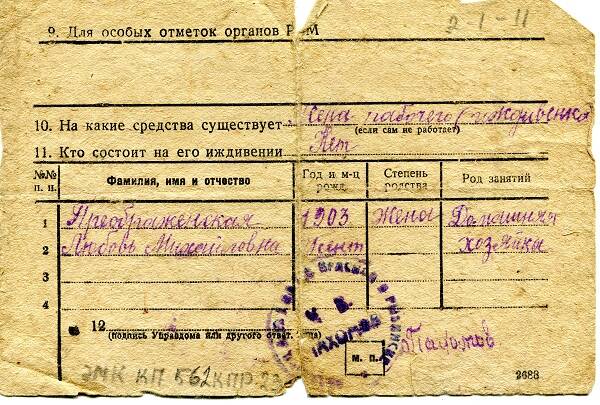 2-I-11
9. Для особых отметок органов РКМ
10. На какие средства существует Жена рабочего (иждивенка)
(если сам не работает)
11. Кто состоит на его иждивении Нет
№№ п. п. Фамилия, имя и отчество Год и м-ц рожд. Степень родства Род занятий
1 Преображенская 1903 Жена Домашняя
2 Любовь Михайловна сент хозяйка
3
4
12
(подпись Управдома или другого ответ. лица)
м. п.
Пахомов
ЭМК КП 562 КПР 23
2688